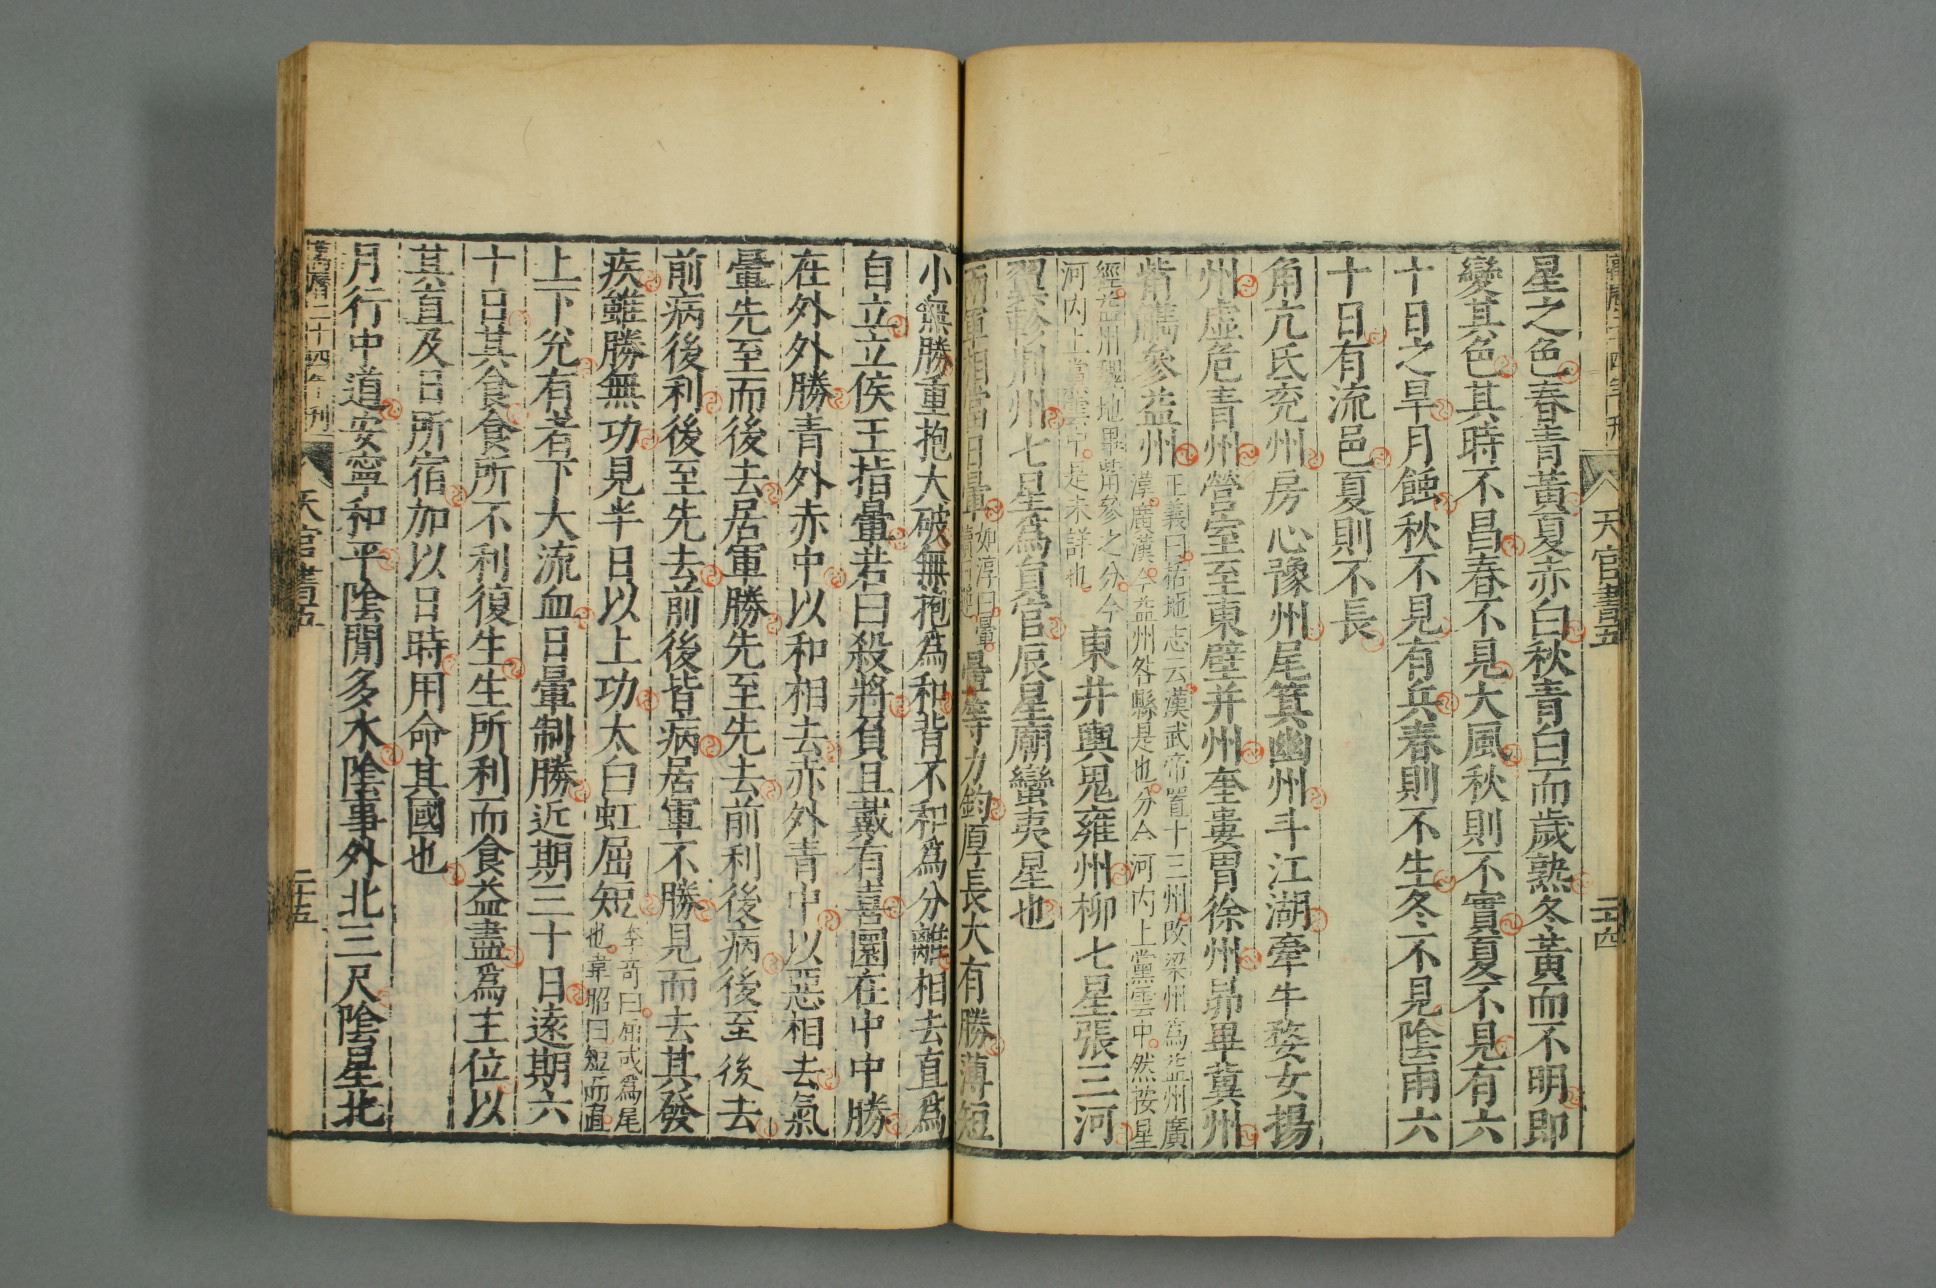 萬曆二十四年刊
天官書五
二十四
星之色春青黃夏赤白秋青白而歲熟冬黃而不明即
變其色其時不昌春不見大風秋則不實夏不見有六
十日之旱月蝕秋不見有兵春則不生冬不見陰雨六
十日有流邑夏則不長
角亢氐兗州房心豫州尾箕幽州斗江湖牽牛婺女揚
州虛危青州營室至東壁并州奎婁胃徐州昴畢冀州
觜觿參益州
正義曰括地志云漢武帝置十三州改梁州為益州廣
漢廣漢今益州咎縣是也分今河內上黨雲中然按星
經益州魏地畢觜參之分今
河內上黨雲中是未詳也
東井輿鬼雍州柳七星張三河
翼軫荊州七星爲員官辰星廟蠻夷星也
兩軍相當日暈
如淳曰暈
暈等力鈞厚長大有勝薄短
小無勝重抱大破無抱爲和背不和爲分離相去直爲
自立立侯王指暈若曰殺將負且戴有喜圍在中中勝
在外外勝青外赤中以和相去赤外青中以惡相去氣
暈先至而後去居軍勝先至先去前利後病後至後去
前病後利後至先去前後皆病居軍不勝見而去其發
疾雖勝無功見半日以上功太白虹屈短
李奇曰屈或爲尾
也韋昭曰短而直
上下兌有者下大流血日暈制勝近期三十日遠期六
十日其食食所不利復生生所利而食益盡爲主位以
其直及日所宿加以日時用命其國也
月行中道安寧和平陰閒多水陰事外北三尺陰星北
萬曆二十四年刊
天官書五
二十五